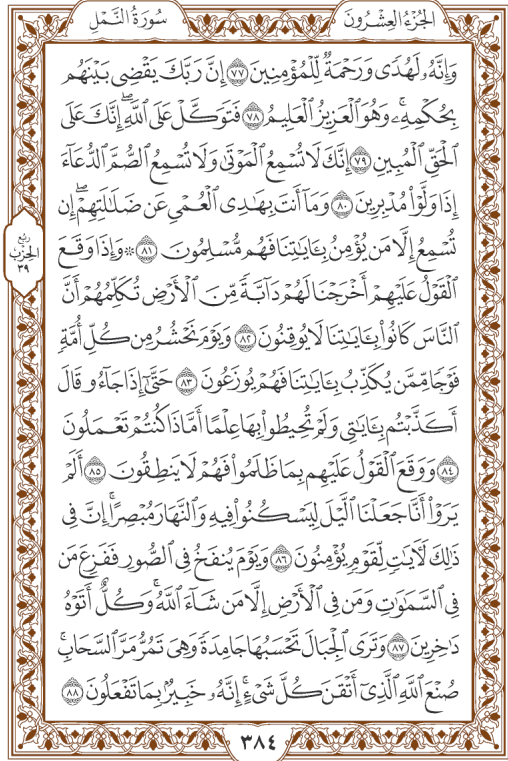 سُورَةُ النَّمْلِ
الجُزْءُ العِشْرُونَ
وَإِنَّهُۥ لَهُدٗى وَرَحۡمَةٞ لِّلۡمُؤۡمِنِينَ ٧٧ إِنَّ رَبَّكَ يَقۡضِي بَيۡنَهُم
بِحُكۡمِهِۦۚ وَهُوَ ٱلۡعَزِيزُ ٱلۡعَلِيمُ ٧٨ فَتَوَكَّلۡ عَلَى ٱللَّهِۖ إِنَّكَ عَلَى
ٱلۡحَقِّ ٱلۡمُبِينِ ٧٩ إِنَّكَ لَا تُسۡمِعُ ٱلۡمَوۡتَىٰ وَلَا تُسۡمِعُ ٱلصُّمَّ ٱلدُّعَآءَ
إِذَا وَلَّوۡاْ مُدۡبِرِينَ ٨٠ وَمَآ أَنتَ بِهَٰدِي ٱلۡعُمۡيِ عَن ضَلَٰلَتِهِمۡۖ إِن
تُسۡمِعُ إِلَّا مَن يُؤۡمِنُ بِـَٔايَٰتِنَا فَهُم مُّسۡلِمُونَ ٨١ ۞وَإِذَا وَقَعَ
ٱلۡقَوۡلُ عَلَيۡهِمۡ أَخۡرَجۡنَا لَهُمۡ دَآبَّةٗ مِّنَ ٱلۡأَرۡضِ تُكَلِّمُهُمۡ أَنَّ
ٱلنَّاسَ كَانُواْ بِـَٔايَٰتِنَا لَا يُوقِنُونَ ٨٢ وَيَوۡمَ نَحۡشُرُ مِن كُلِّ أُمَّةٖ
فَوۡجٗا مِّمَّن يُكَذِّبُ بِـَٔايَٰتِنَا فَهُمۡ يُوزَعُونَ ٨٣ حَتَّىٰٓ إِذَا جَآءُو قَالَ
أَكَذَّبۡتُم بِـَٔايَٰتِي وَلَمۡ تُحِيطُواْ بِهَا عِلۡمًا أَمَّاذَا كُنتُمۡ تَعۡمَلُونَ
٨٤ وَوَقَعَ ٱلۡقَوۡلُ عَلَيۡهِم بِمَا ظَلَمُواْ فَهُمۡ لَا يَنطِقُونَ ٨٥ أَلَمۡ
يَرَوۡاْ أَنَّا جَعَلۡنَا ٱلَّيۡلَ لِيَسۡكُنُواْ فِيهِ وَٱلنَّهَارَ مُبۡصِرًاۚ إِنَّ فِي
ذَٰلِكَ لَأٓيَٰتٖ لِّقَوۡمٖ يُؤۡمِنُونَ ٨٦ وَيَوۡمَ يُنفَخُ فِي ٱلصُّورِ فَفَزِعَ مَن
فِي ٱلسَّمَٰوَٰتِ وَمَن فِي ٱلۡأَرۡضِ إِلَّا مَن شَآءَ ٱللَّهُۚ وَكُلٌّ أَتَوۡهُ
دَٰخِرِينَ ٨٧ وَتَرَى ٱلۡجِبَالَ تَحۡسَبُهَا جَامِدَةٗ وَهِيَ تَمُرُّ مَرَّ ٱلسَّحَابِۚ
صُنۡعَ ٱللَّهِ ٱلَّذِيٓ أَتۡقَنَ كُلَّ شَيۡءٍۚ إِنَّهُۥ خَبِيرُۢ بِمَا تَفۡعَلُونَ ٨٨
رُبْع
الحِزْبِ
٣٩
٣٨٤